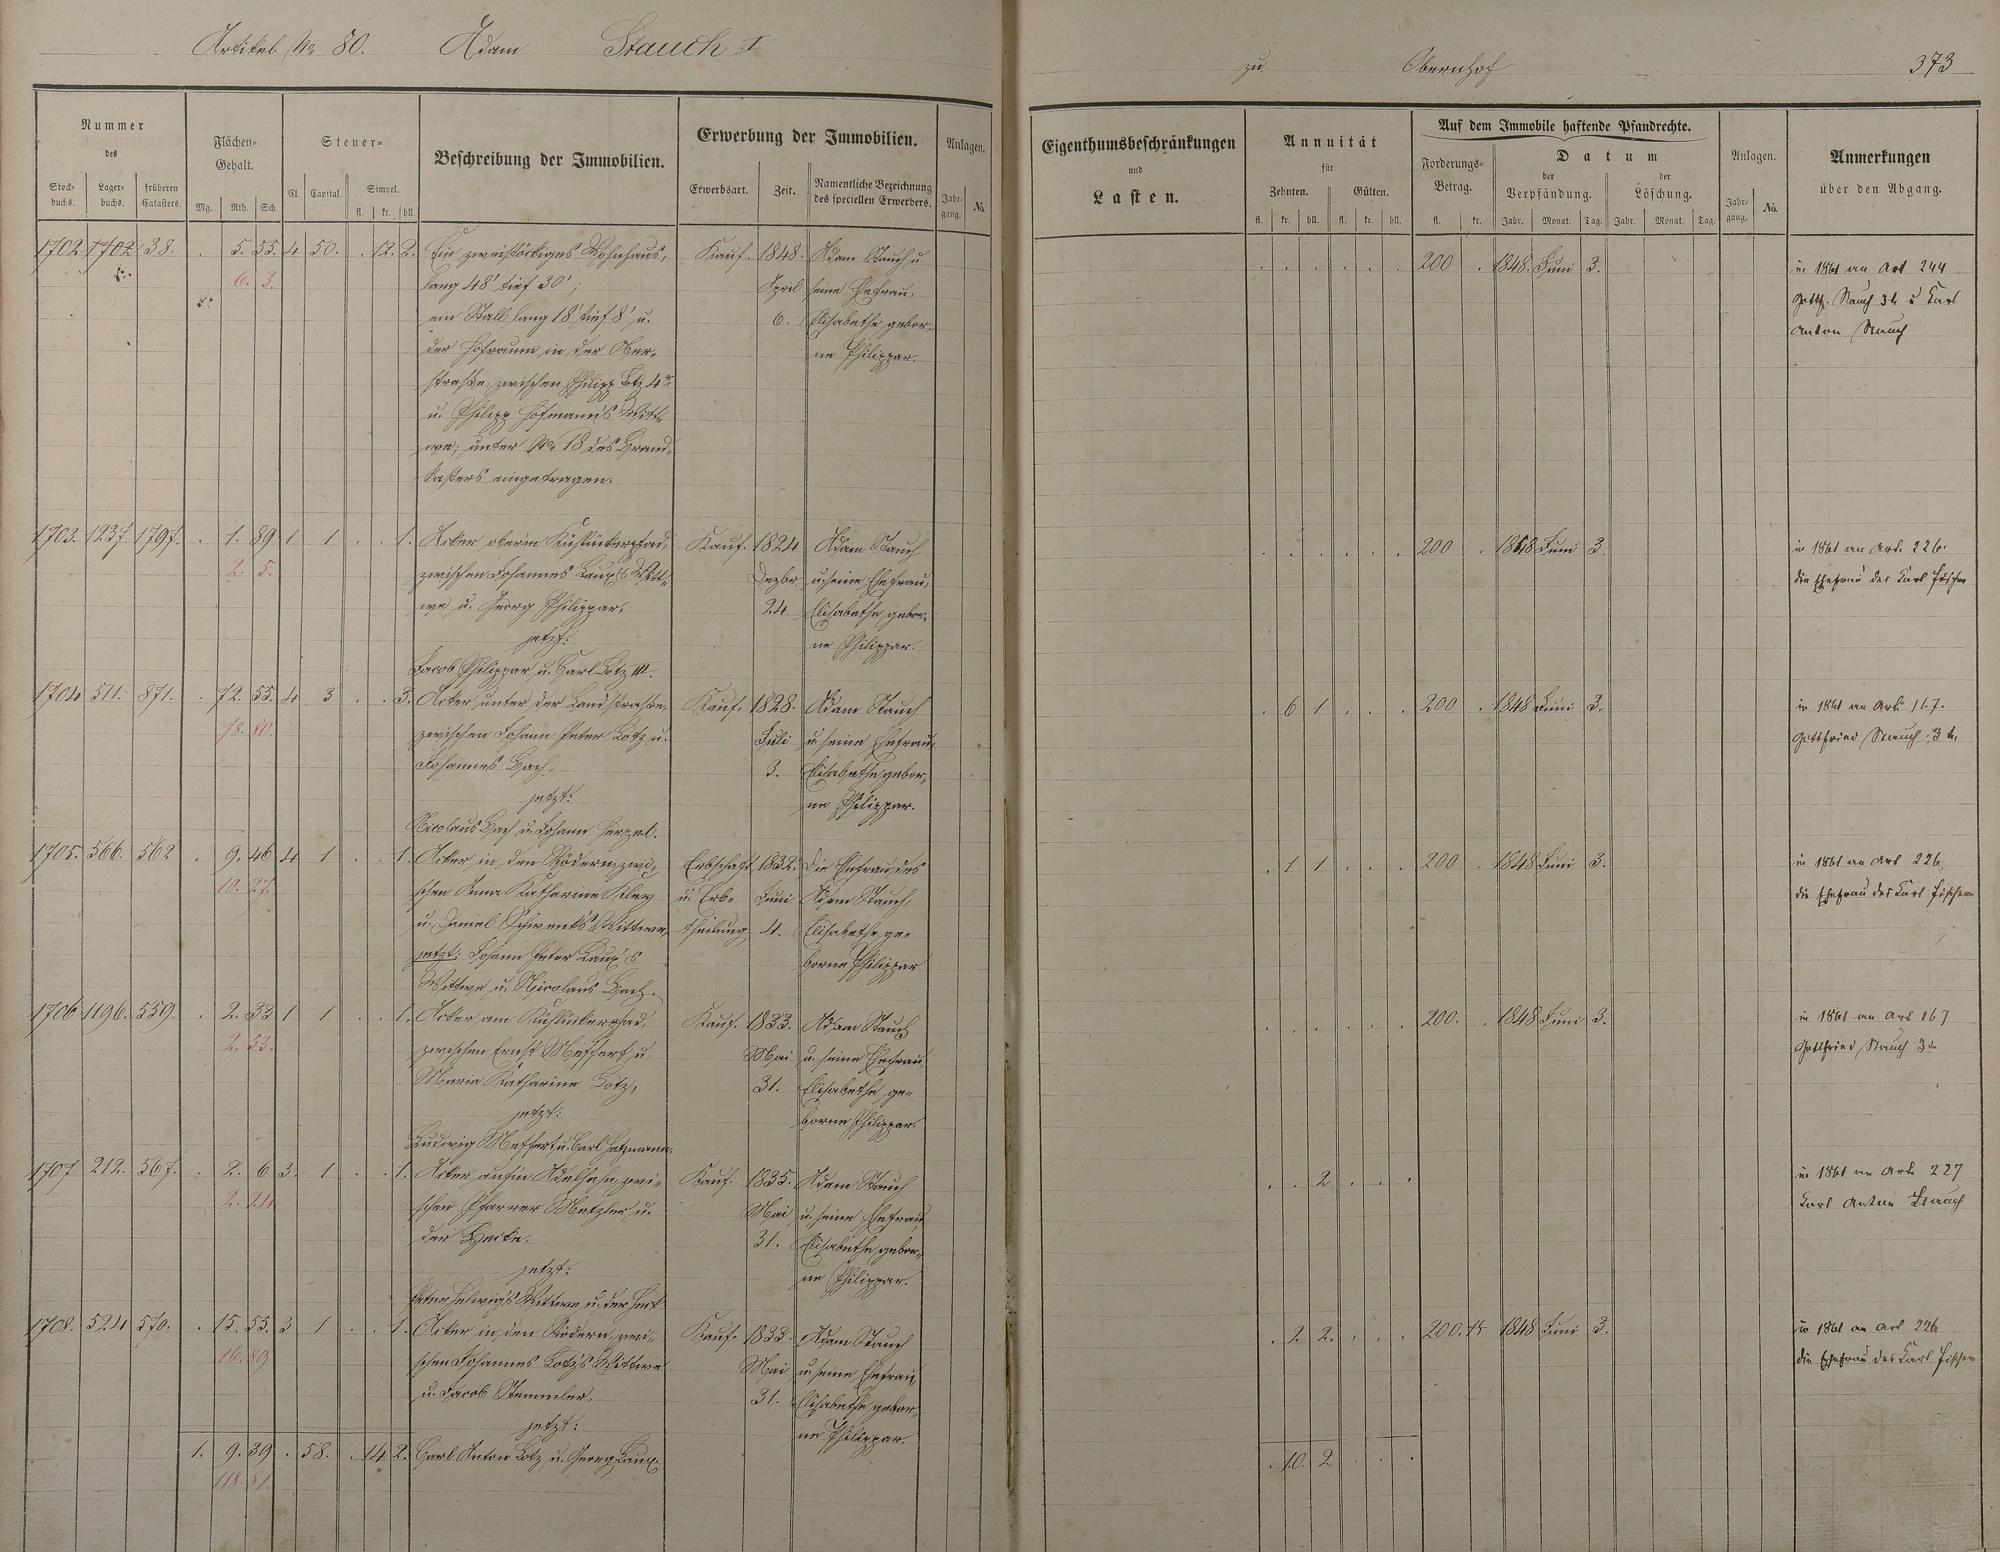 Artikel No 80. Adam Stauch I
zu Obernhof 373
Nummer des
Stock-buchs. Lager-buchs. früheren Catasters.
Flächen-Gehalt.
Mg. Rth. Sch.
Steuer-
Cl. Capital. Simpel.
fl. kr. hll.
Beschreibung der Immobilien.
Erwerbung der Immobilien.
Erwerbsart. Zeit. Namentliche Bezeichnung des speciellen Erwerbers.
Anlagen.
Jahr-gang. No.
Eigenthumsbeschränkungen
und
Lasten.
Annuität
für
Zehnten. Gülten.
fl. kr. hll. fl. kr. hll.
Auf dem Immobile haftende Pfandrechte.
Forderungs-Betrag.
fl. kr.
Datum
der Verpfändung. der Löschung.
Jahr. Monat. Tag. Jahr. Monat. Tag.
Anlagen.
Jahr-gang. No.
Anmerkungen
über den Abgang.
1702 1702 38. . 5. 55. 4 50. . 12. 2. Ein zweistöckiges Wohnhaus, Kauf. 1848. Adam Stauch u
6. 3. lang 48' tief 30'; April seine Ehefrau,
ein Stall lang 18' tief 8' u. 6. Elisabethe gebor-
der Hofraum in der Ober- ne Philippar.
straße, zwischen Philipp Lotz 4r
u. Philipp Hofmann's Witt-
we; unter No 18 des Brand-
kasters eingetragen.
200 . 1848. Juni 3.
in 1861 an Art 244
Gottf. Stauch 3t u Karl
Anton Stauch
1703. 1237 1797. . 1. 89 1 1 . . 1. Acker oberm Kuhlückerpfad, Kauf. 1824 Adam Stauch
2. 5. zwischen Johannes Laux's Witt- Dezbr u. seine Ehefrau,
we u. Georg Philippar, 24. Elisabethe gebor-
jetzt: ne Philippar.
Jacob Philippar u. Carl Lotz III.
200 . 1848 Juni 3.
in 1861 an Art. 226.
die Ehefrau des Karl Fischer
1704 511. 871. . 72. 55. 4 3 . . 3. Acker unter der Landstraße, Kauf. 1828. Adam Stauch
78. 80. zwischen Johann Peter Lotz u. Juli u. seine Ehefrau
Johannes Bach, 3. Elisabethe gebor-
jetzt: ne Philippar.
Nicolaus Bach u. Johann Herzel.
. 6 1 . . . 200 . 1848 Juni 3.
in 1861 an Art. 167.
Gottfried Stauch 3t.
1705. 566. 562 . 9. 46 4 1 . . 1. Acker in den Rödern, zwi- Erbschaft 1832. Die Ehefrau des
10. 27. schen Anna Katharine Kley u. Erb- Juni Adam Stauch,
u. Daniel Schwenk's Wittwe, theilung 4. Elisabethe ge-
jetzt: Johann Peter Laux's borne Philippar
Wittwe u. Nicolaus Bach.
. 1 1 . . . 200 . 1848 Juni 3.
in 1861 an Art 226
die Ehefrau des Karl Fischer
1706 1196. 559. . 2. 33 1 1 . . 1. Acker am Kuhlückerpfad, Kauf. 1833. Adam Stauch
2. 53. zwischen Ernst Meffert u Mai u. seine Ehefrau,
Maria Katharine Lotz, 31. Elisabethe ge-
jetzt: borne Philippar.
Ludwig Meffert u. Carl Hatzmann.
200. . 1848 Juni 3.
in 1861 an Art 167
Gottfried Stauch 3t
1707 212. 567. . 2. 6 3. 1 . . 1. Acker auf'm Adelhahn, zwi- Kauf. 1835. Adam Stauch
2. 24 schen Pfarrer Metzler u. Mai u. seine Ehefrau
der Hecke. 31. Elisabethe gebor-
jetzt: ne Philippar.
Peter Helwig's Wittwe u. der Heck
. . 2 . . .
in 1861 an Art. 227
Karl Anton Stauch
1708. 524 570. . 15. 55. 3 1 . . 1. Acker in den Rödern, zwi- Kauf. 1833. Adam Stauch
16. 89 schen Johannes Lotz's Wittwe Mai u. seine Ehefrau,
u. Jacob Stemmler, 31. Elisabethe gebor-
jetzt: ne Philippar.
1. 9. 39 . 58. . 14 2. Carl Anton Lotz u. Georg Laux.
118. 81.
. 2 2. . . . 200. 1848 Juni 3.
in 1861 an Art 226
die Ehefrau des Karl Fischer
. 10. 2 . . .